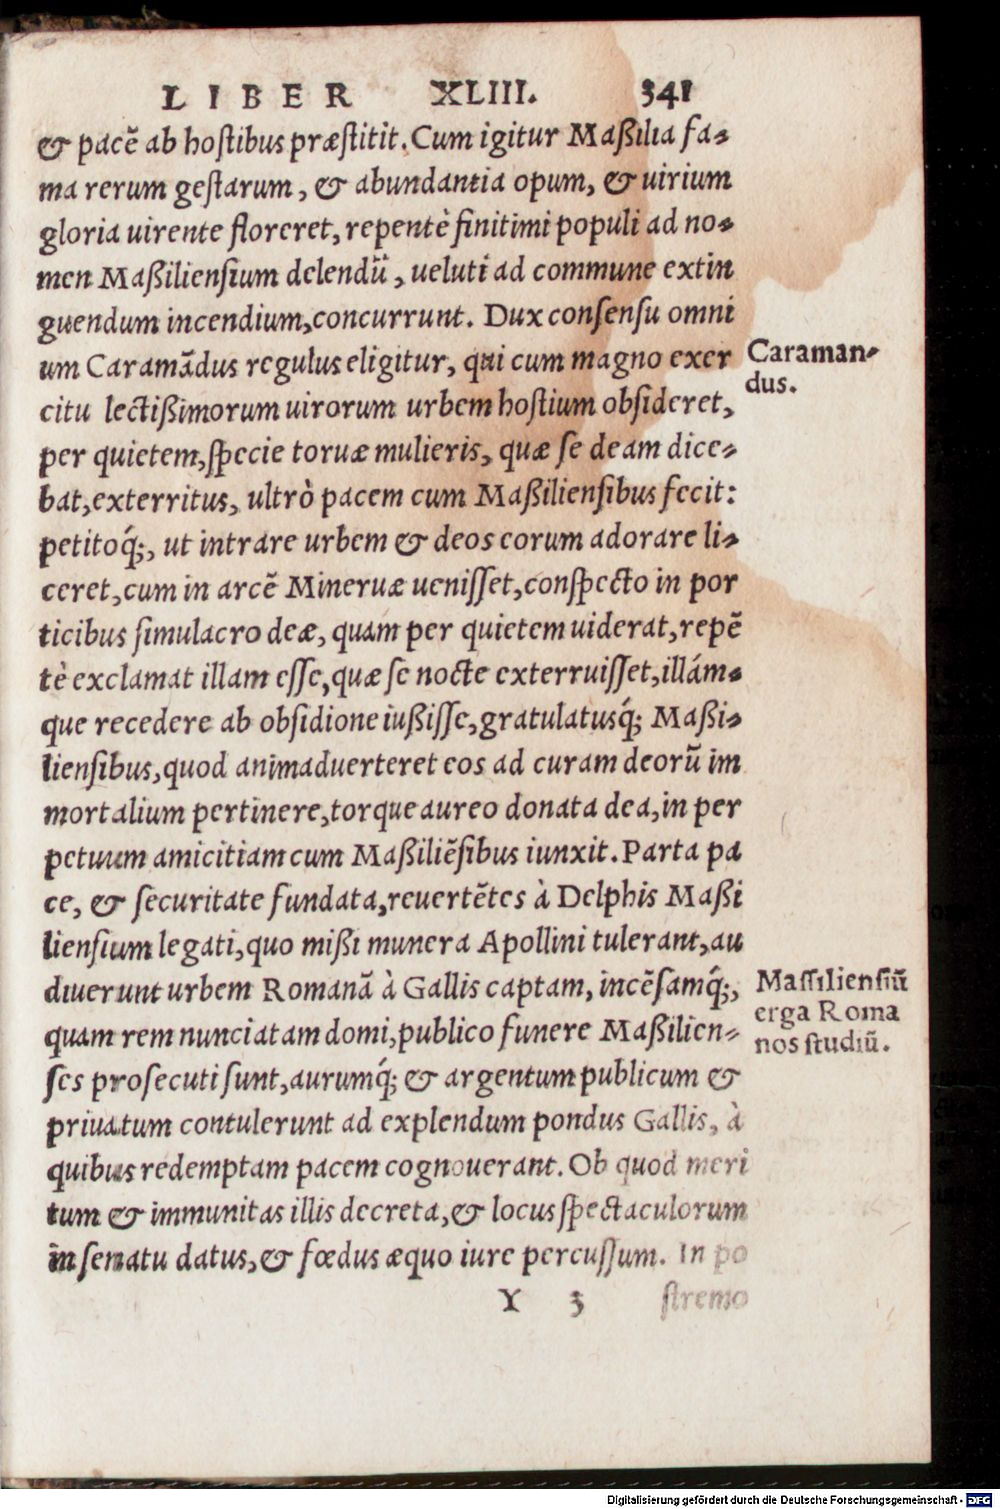 LIBER XLIII. 341
& pacē ab hostibus præstitit. Cum igitur Maßilia fa-
ma rerum gestarum, & abundantia opum, & uirium
gloria uirente floreret, repentè finitimi populi ad no-
men Maßiliensium delendū, ueluti ad commune extin
guendum incendium, concurrunt. Dux consensu omni
um Caramādus regulus eligitur, qui cum magno exer
Caraman-
dus.
citu lectißimorum uirorum urbem hostium obsideret,
per quietem, specie toruæ mulieris, quæ se deam dice-
bat, exterritus, ultrò pacem cum Maßiliensibus fecit:
petitoq́;, ut intrare urbem & deos eorum adorare li-
ceret, cum in arcē Mineruæ uenisset, conspecto in por
ticibus simulacro deæ, quam per quietem uiderat, repē
tè exclamat illam esse, quæ se nocte exterruisset, illám-
que recedere ab obsidione iußisse, gratulatusq́; Maßi-
liensibus, quod animaduerteret eos ad curam deorū im
mortalium pertinere, torque aureo donata dea, in per
petuum amicitiam cum Maßiliēsibus iunxit. Parta pa
ce, & securitate fundata, reuertētes à Delphis Maßi
liensium legati, quo mißi munera Apollini tulerant, au
diuerunt urbem Romanā à Gallis captam, incēsamq́;,
Massiliensiū
erga Roma
nos studiū.
quam rem nunciatam domi, publico funere Maßilien-
ses prosecuti sunt, aurumq́; & argentum publicum &
priuatum contulerunt ad explendum pondus Gallis, à
quibus redemptam pacem cognouerant. Ob quod meri
tum & immunitas illis decreta, & locus spectaculorum
in senatu datus, & fœdus æquo iure percussum. In po
Y 3 stremo
Digitalisierung gefördert durch die Deutsche Forschungsgemeinschaft - DFG